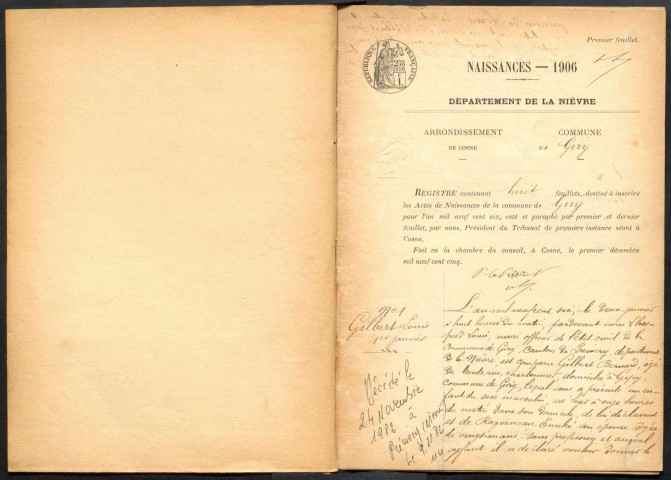 Premier feuillet.
RÉPUBLIQUE FRANÇAISE
NAISSANCES — 1906
DÉPARTEMENT DE LA NIÈVRE
ARRONDISSEMENT
DE COSNE
COMMUNE
DE Giry
REGISTRE contenant huit feuillets, destiné à inscrire
les Actes de Naissances de la commune de Giry
pour l'an mil neuf cent six, coté et paraphé par premier et dernier
feuillet, par nous, Président du Tribunal de première instance séant à
Cosne.
Fait en la chambre du conseil, à Cosne, le premier décembre
mil neuf cent cinq.
N° 1
Gilbert Louis
1er janvier
Décédé le
24 Novembre
1982 à
Prémery (Nièvre)
L'an mil neuf cent six, le deux janvier
à huit heures du matin, pardevant nous
Louis, maire officier de l'état civil de la
Commune de Giry, Canton de Prémery, département
de la Nièvre, est comparu Gilbert Bernard, âgé
de trente ans, charbonnier, domicilié à Giry,
Commune de Giry, lequel nous a présenté un en-
fant du sexe masculin, né hier à onze heures
du matin dans son domicile, de lui déclarant
et de Ragueneau Emélie son épouse âgée
de vingt-six ans, sans profession et auquel
enfant il a déclaré vouloir donner le